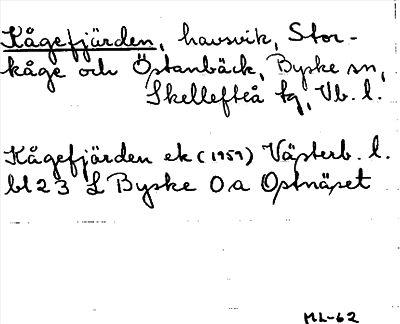 Kågefjärden, havsvik, Stor-
kåge och Östanbäck, Byske sn,
Skellefteå tg, Vb. l.
Kågefjärden ek (1959) Västerb. l.
bl 23 L Byske Oa Ostnäset
ML-62